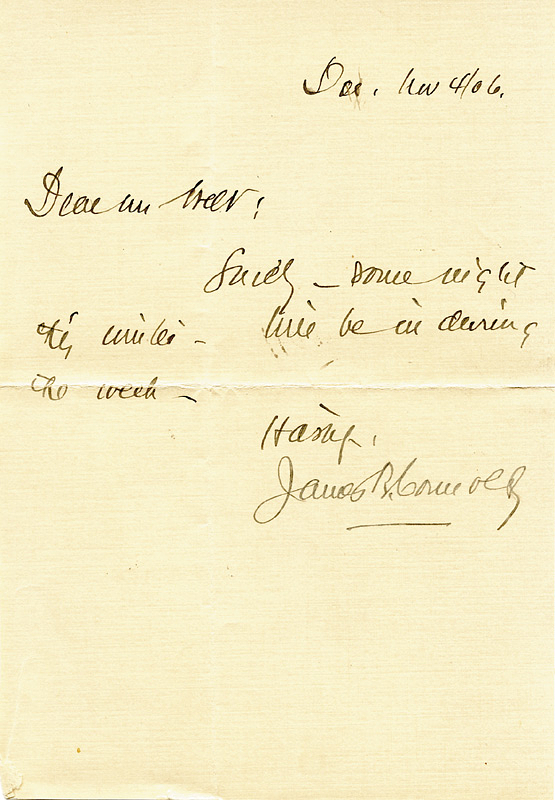 Nov 4/06.
Dear Mr
Surely – some night
this winter – Will be in during
the week –
Hastily,
James B. Connolly